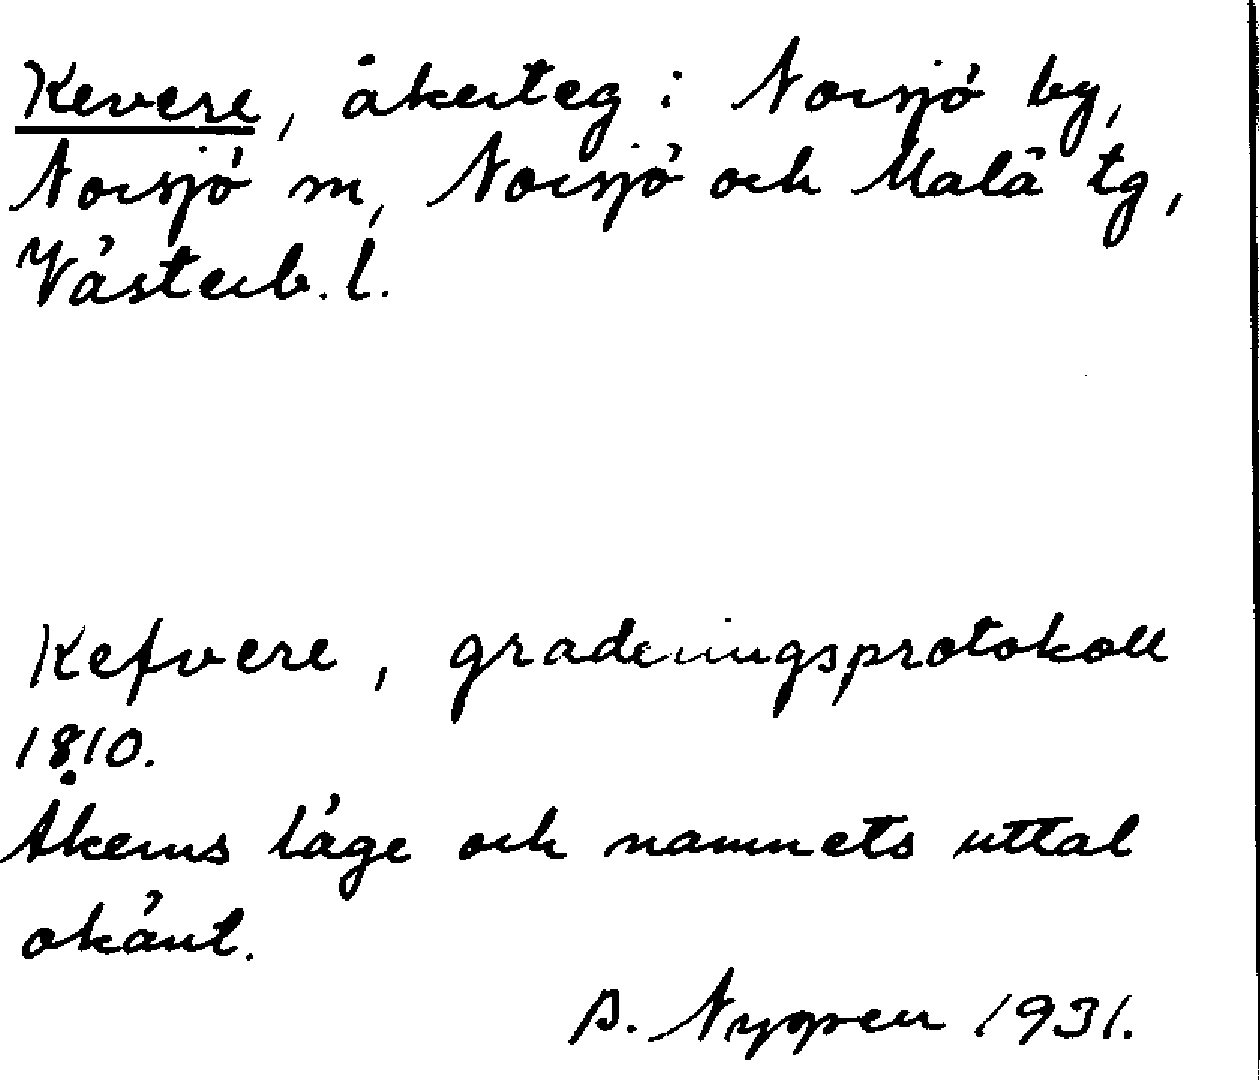 Kevere, åkerteg i Norsjö by,
Norsjö sn, Norsjö och Malå tg,
Västerb. l.
Kefvere, graderingsprotokoll
1810.
Åkerns läge och namnets uttal
okänt.
A. Nygren 1931.